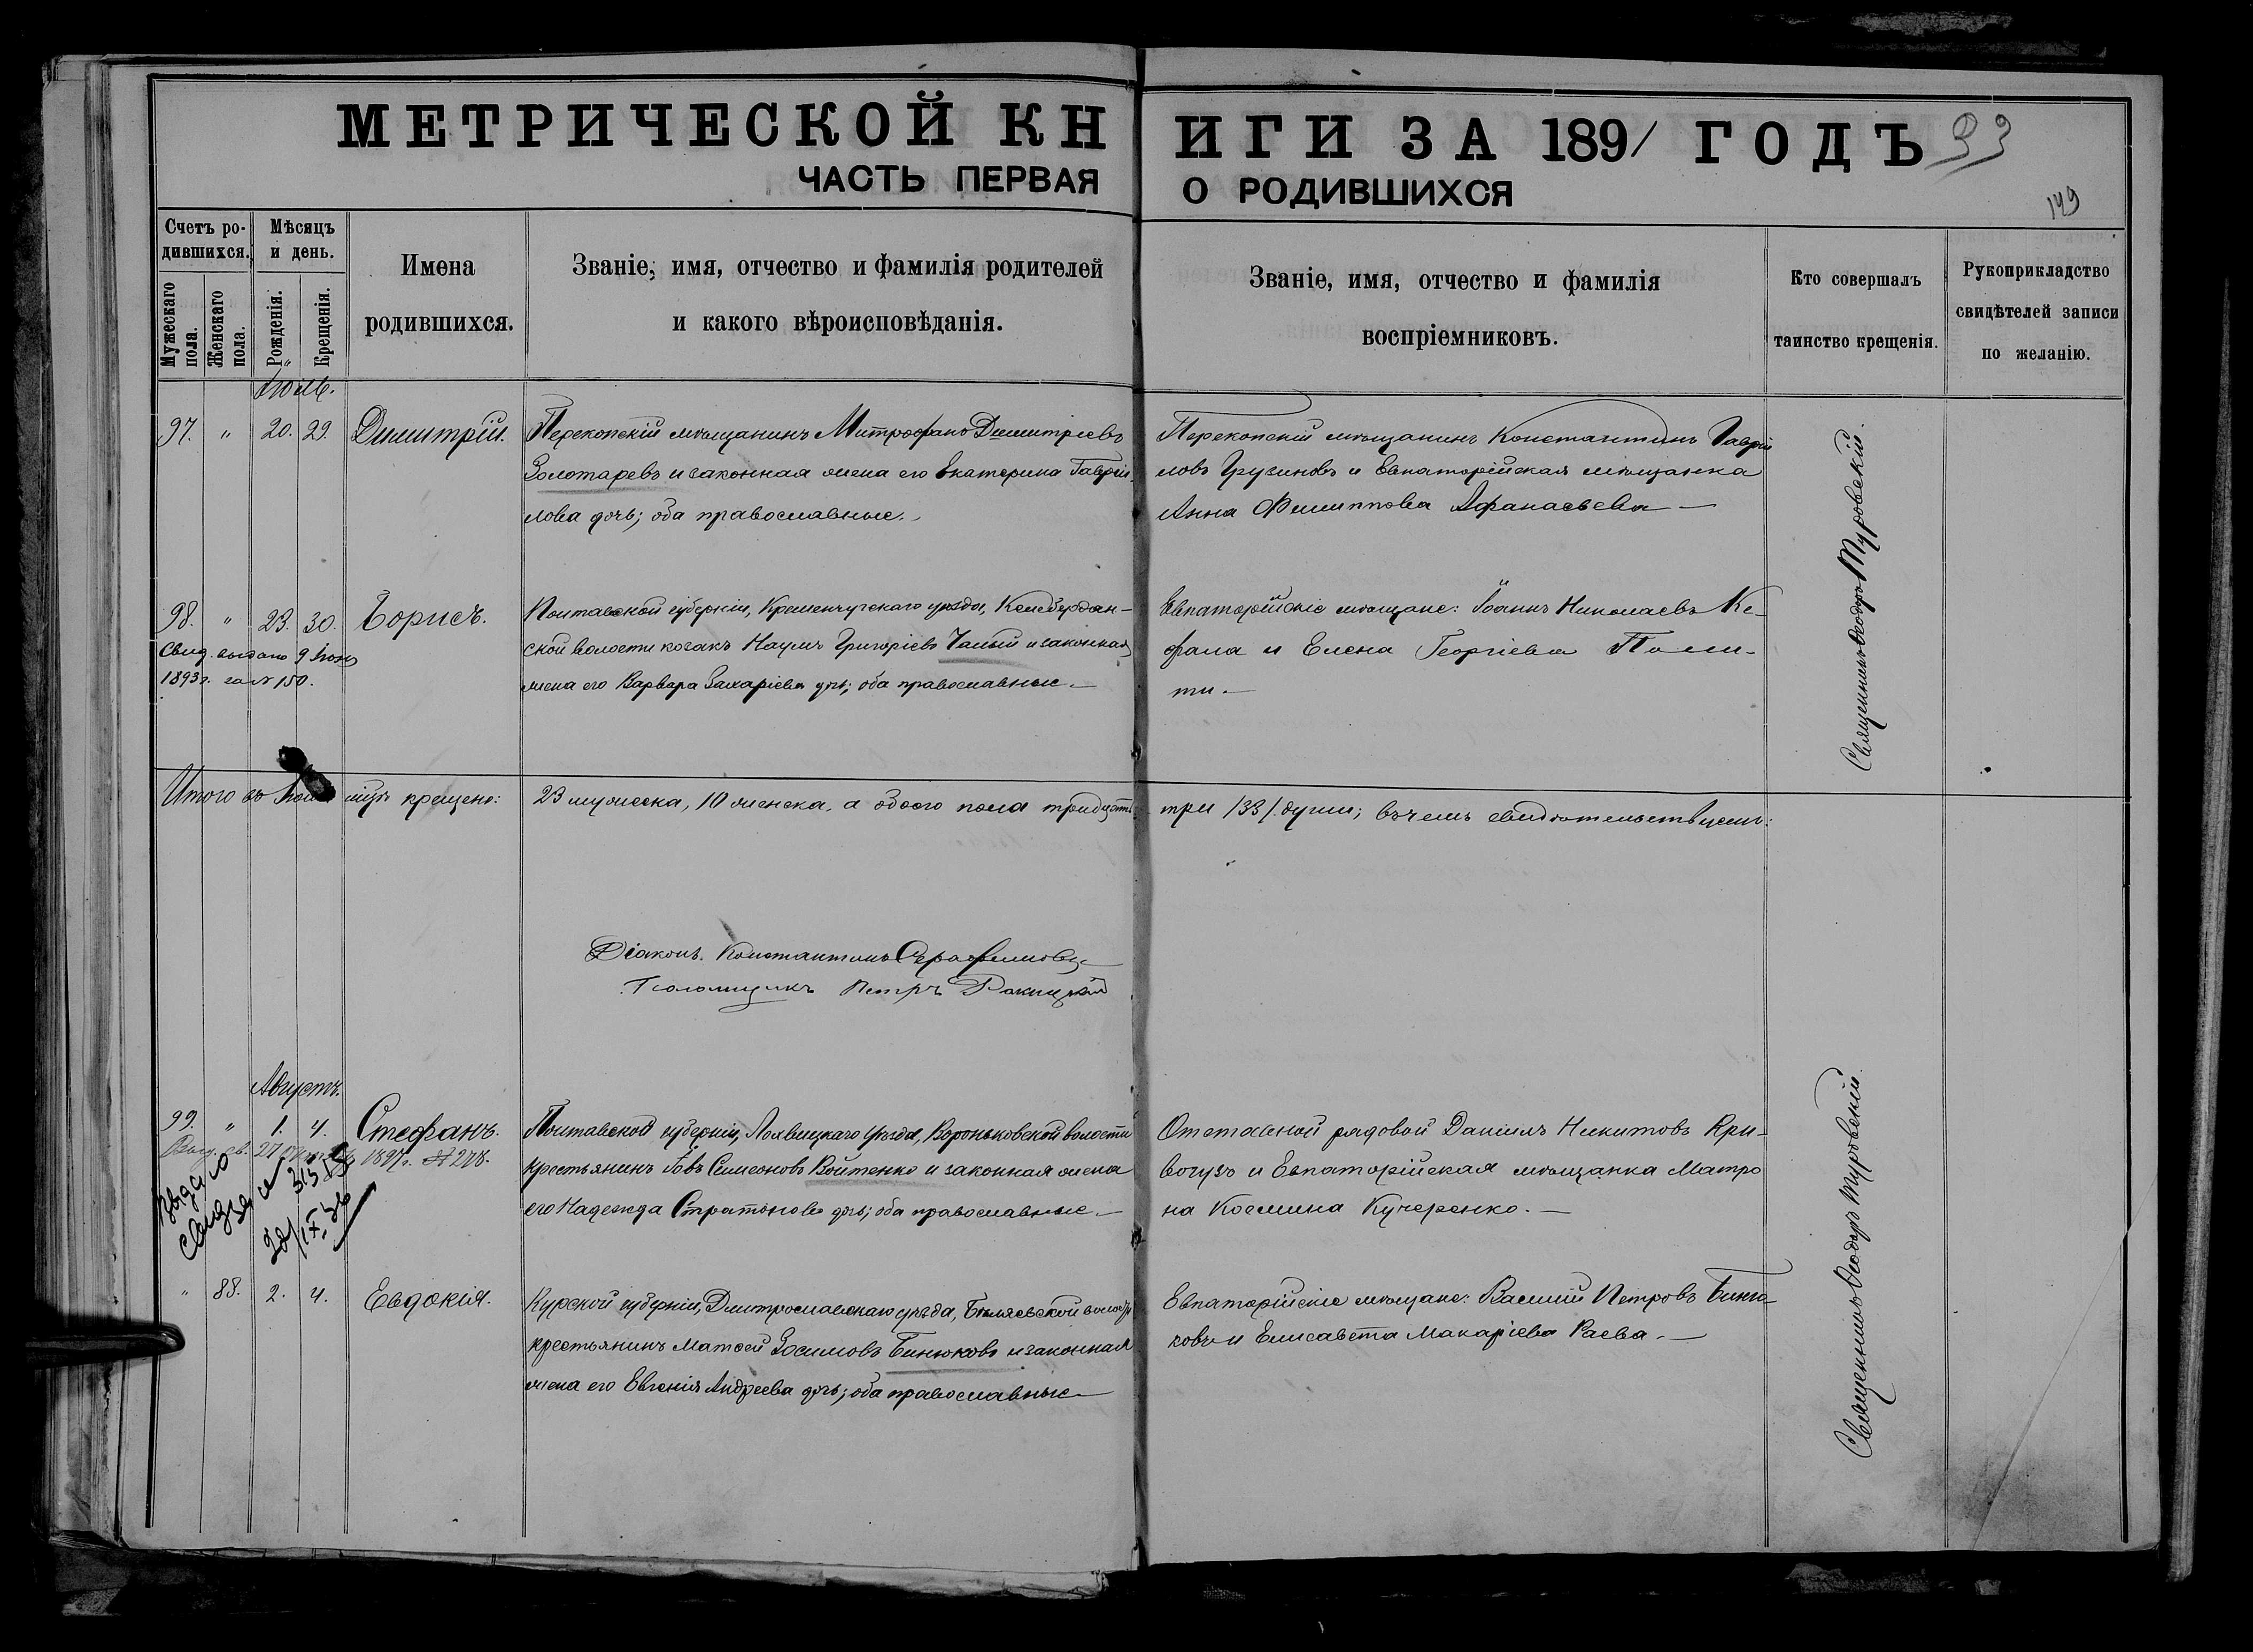 МЕТРИЧЕСКОЙ КНИГИ ЗА 1891 ГОДЪ 33
ЧАСТЬ ПЕРВАЯ О РОДИВШИХСЯ
149
Счетъ родившихся.
Мужескаго пола.
Женскаго пола.
Мѣсяцъ и день.
Рожденія.
Крещенія.
Имена
родившихся.
Званіе, имя, отчество и фамилія родителей
и какого вѣроисповѣданія.
Званіе, имя, отчество и фамилія
воспріемниковъ.
Кто совершалъ
таинство крещенія.
Рукоприкладство
свидѣтелей записи
по желанію.
Іюль.
97. " 20. 29. Димитрій.
Перекопскій мѣщанинъ Митрофанъ Димитріевъ
Золотаревъ и законная жена его Екатерина Гаврiи-
лова дочь; оба православные.
Перекопскій мѣщанинъ Константинъ Гаврiи-
ловъ Грузиновъ и Евпаторійская мѣщанка
Анна Филиппова Афанасьева —
98. " 23. 30. Борисъ.
Свид. выдано 9 Іюня
1893 г. за № 150.
Полтавской губерніи, Кременчугскаго уѣзда, Келебердан-
ской волости козакъ Наумъ Григоріевъ Чалый и законная
жена его Варвара Захаріева дчь; оба православные —
Евпаторійскіе мѣщане: Іоаннъ Николаевъ Ке-
фала и Елена Георгіева Поли-
ти. —
Священникъ Ѳеодоръ Туровскій.
Итого въ Іюлѣ мцѣ крещено: 23 мужеска, 10 женска, а обоего пола тридцать три /33/ души; въ чемъ свидѣтельствуемъ:
Діаконъ Константинъ Серафимовъ
Псаломщикъ Петръ Ракицкій
Августъ.
99. " 1. 4. Стефанъ.
Выд. св. 27 1897 г. № 278.
Выдано
свид за №
313
28/IX
Полтавской губерніи, Лохвицкаго уѣзда, Вороньковской волости
крестьянинъ Іовъ Симеоновъ Войтенко и законная жена
его Надежда Стратонова дчь; оба православные. —
Отставной рядовой Даніилъ Никитовъ Кри-
вогузъ и Евпаторійская мѣщанка Матро
на Космина Кучеренко. —
" 88. 2. 4. Евдокія.
Курской губерніи, Дмитрославскаго уѣзда, Бѣляевской волости
крестьянинъ Матѳей Зосимовъ Бинюковъ и законная
жена его Евгенія Андреева дчь; оба православные —
Евпаторійскіе мѣщане: Василій Петровъ Биню-
ковъ и Елисавета Макаріева Раева. —
Священникъ Ѳеодоръ Туровскій.